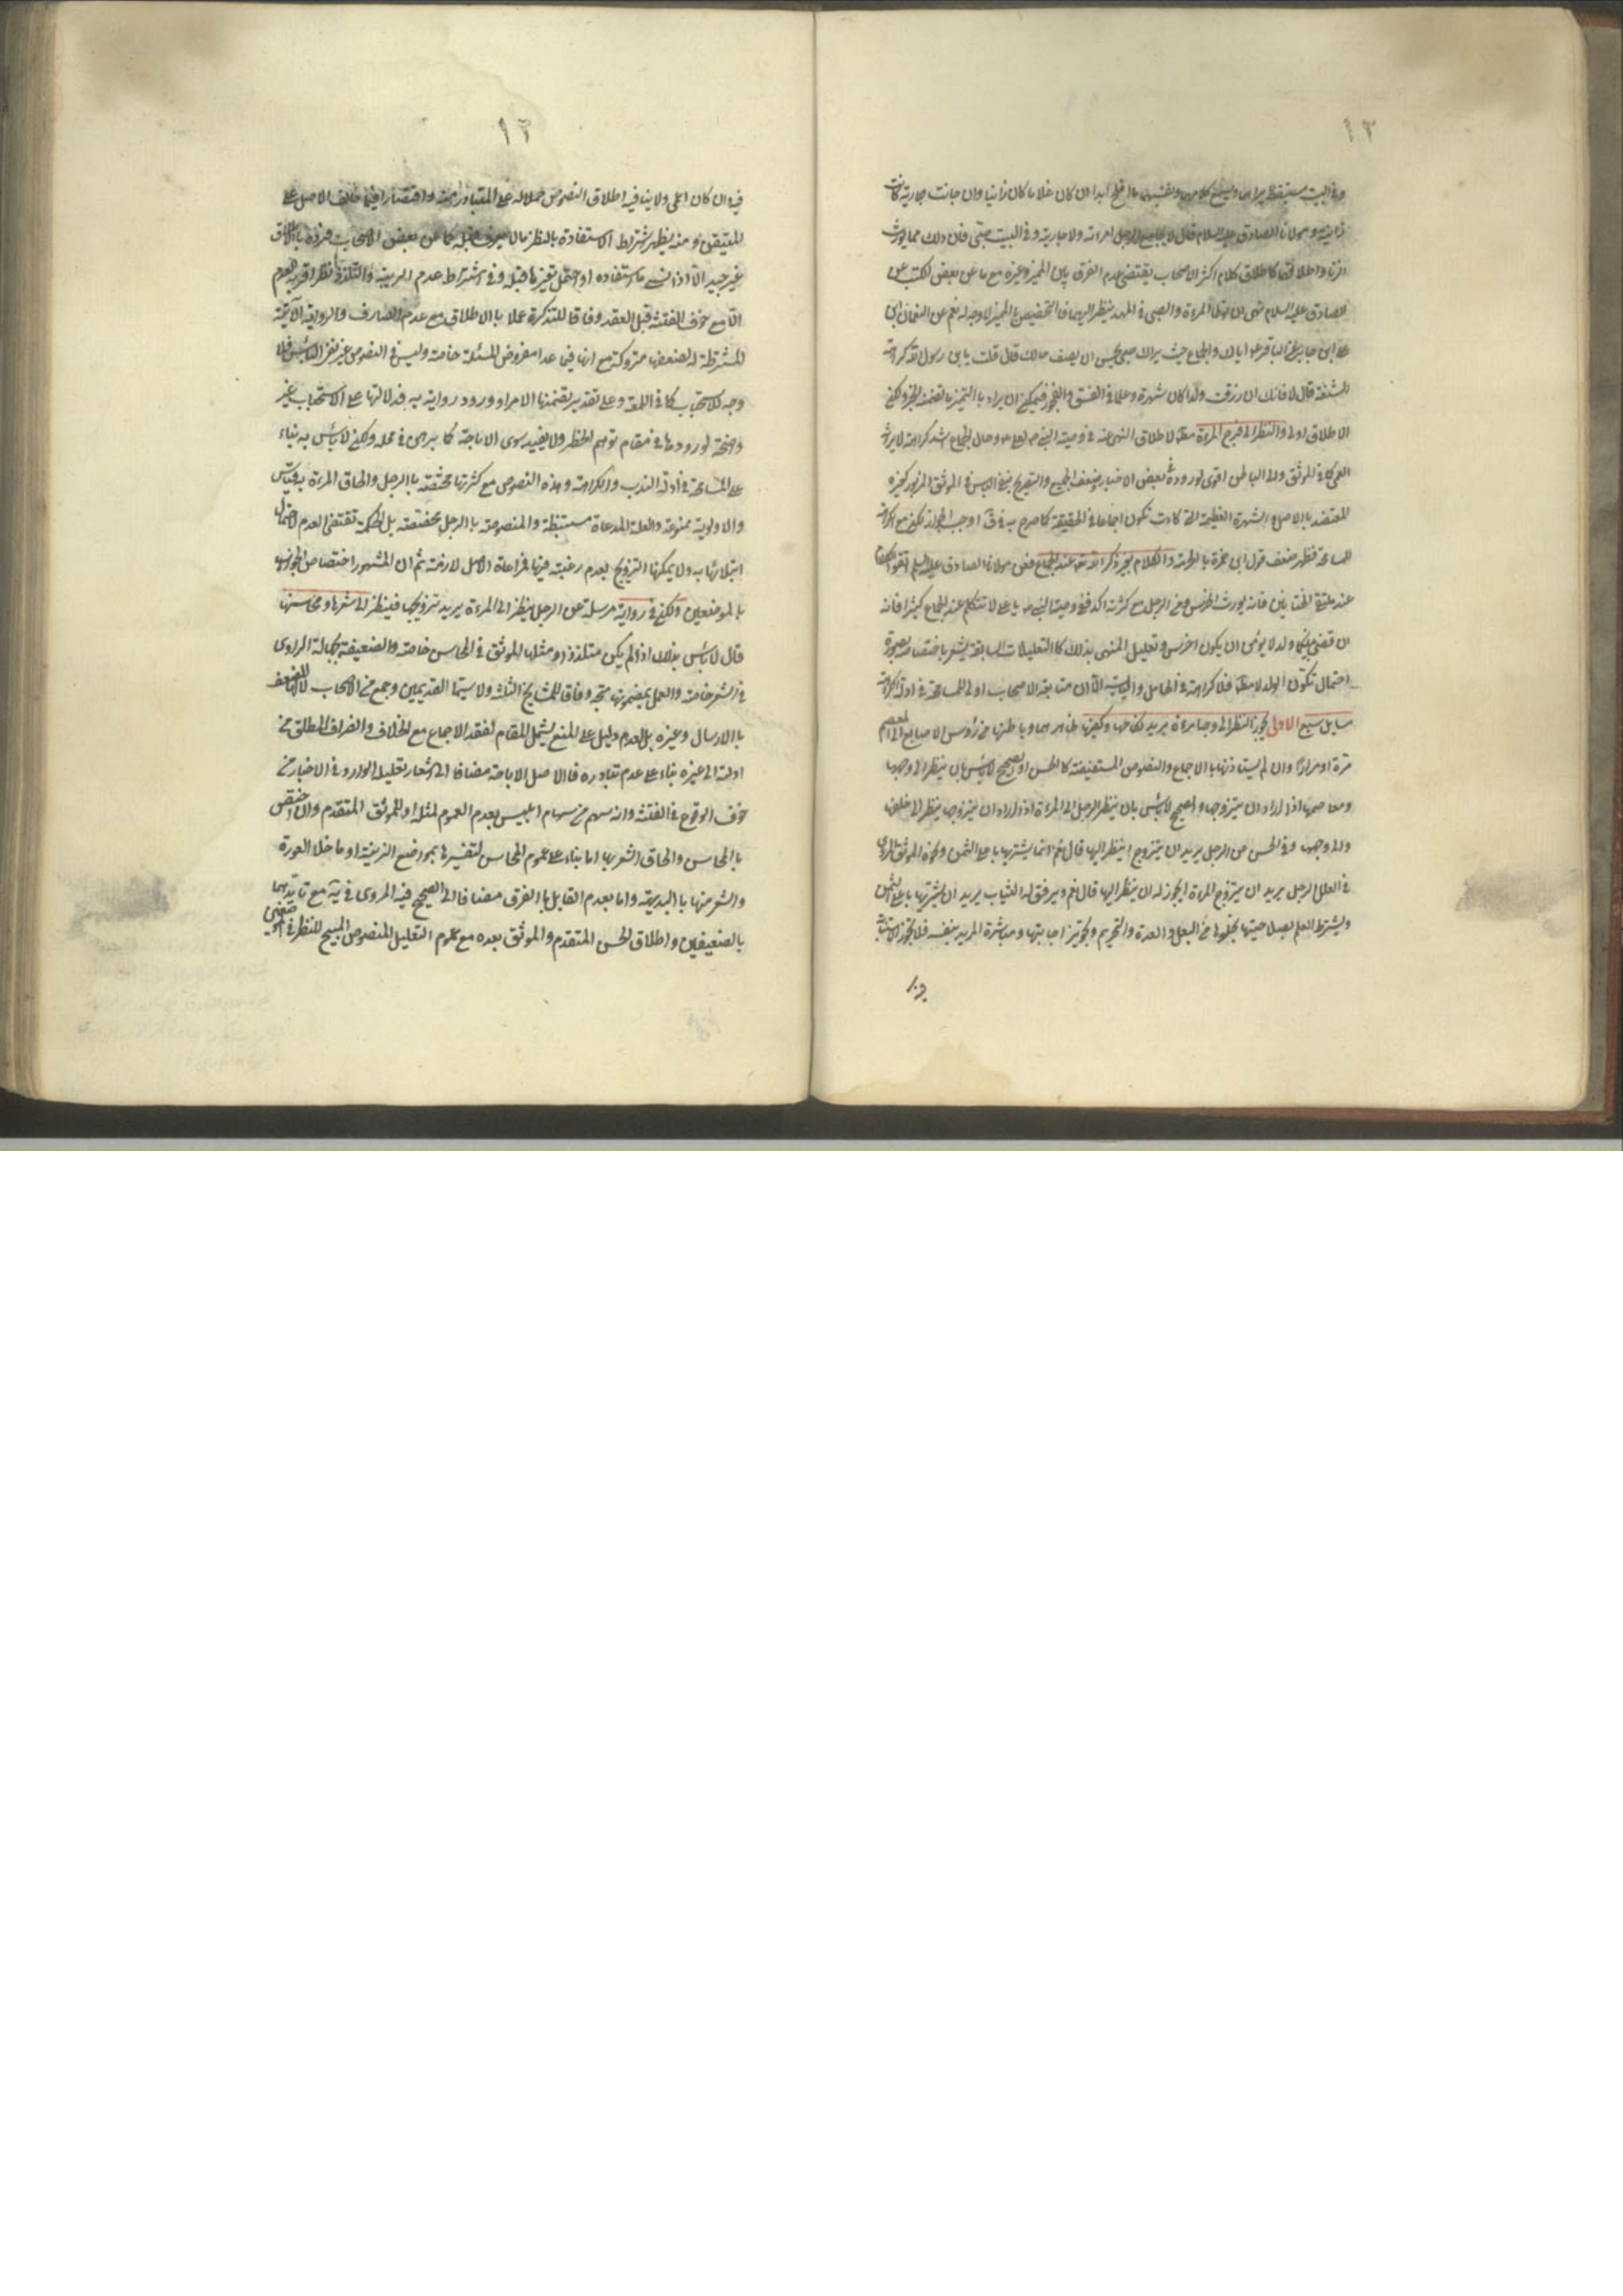 ١٣
وفي البيت مستيقظ يراهما ويسمع كلامهما ونفسهما ما افلح ابدا ان كان غلاما كان زانيا وان كانت جارية كانت
زانية وعن مولانا الصادق عليه السلام قال لا يجامع الرجل امراته ولا جاريته وفي البيت صبي فان ذلك مما يورث
الزنا واطلاقها كاطلاق كلام اكثر الاصحاب يقتضي عدم الفرق بين المميز وغيره مع ما عن بعض الكتب عن
الصادق عليه السلام نهى ان توطأ المرءة والصبي في المهد ينظر اليهما فالتخصيص بالمميز لا وجه له نعم عن النعمان بن
علي بن جابر عن الباقر ع اياك والجماع حيث يراك صبي يحسن ان يصف حالك قال قلت يابن رسول الله كراهة
الشنعة قال لا فانك ان رزقت ولدا كان شهرة وعلما في الفسق والفجور فيمكن ان يراد بالتميز ما تضمنه الخبر ولكن
الاطلاق اولى والنظر الى فرج المرءة مطلقا لاطلاق النهي عنه في وصية النبي ص لعلي ع وحال الجماع اشد كراهة لايراثه
العمى كما في الموثق والى الباطن اقوى لوروده بعض الاخبار وضعف الجميع والتصريح بنفي الباس في الموثق المزبور كغيره
المعتضد بالاصل والشهرة العظيمة التي كادت تكون اجماعا في الحقيقة كما صرح به في ف اوجب الجواز لكن مع الكراهة
للمسامحة فظهر ضعف قول ابن حمزة بالحرمة والكلام بغير ذكر الله تعالى عند الجماع فعن مولانا الصادق عليه السلم اتقوا الكلام
عند ملتقى الختانين فانه يورث الخرس ومن الرجل مع كثرته اكد ففي وصية النبي ص يا علي لا تتكلم عند الجماع كثيرا فانه
ان قضي بينكما ولد لا يؤمن ان يكون اخرس وتعليل المنهي بذلك كالتعليلات السابقة يشعر باختصاصه بصورة
احتمال تكون الولد لا مطلقا فلا كراهة في الحامل واليائسة الا ان متابعة الاصحاب اولى للمسامحة في ادلة الكراهة
مسايل سبع الاولى يجوز النظر الى وجه امرءة يريد نكاحها وكفيها ظاهرهما وباطنهما من رؤس الاصابع الى المعصم
مرة او مرارا وان لم يستاذنها بالاجماع والنصوص المستفيضة كالحسن او الصحيح لا بأس بان ينظر الى وجهها
ومعاصمها اذا اراد ان يتزوجها والصحيح لا بأس بان ينظر الرجل الى المرءة اذا اراد ان يتزوجها ينظر الى خلفها
والى وجهها وفي الحسن عن الرجل يريد ان يتزوج اينظر اليها قال نعم انما يشتريها باغلى الثمن ونحوه الموثق المروي
في العلل الرجل يريد ان يتزوج المرءة ايجوز له ان ينظر اليها قال نعم ويرقق له الثياب يريد ان يشتريها باغلى الثمن
ويشترط العلم بصلاحيتها بخلوها من البعل والعدة والتحريم وتجويز اجابتها ومباشرة المريد بنفسه فلا يجوز الاستنابة
١٣
فيه وان كان اعمى ولا ينافيه اطلاق النصوص حملا له على المتبادر منه واقتصارا فيما خالف الاصل على
المتيقن ومنه يظهر اشتراط الاستفادة بالنظر ما لا يعرف قبله كما عن بعض الاصحاب
غير جيد الا اذا نسي ما استفاده او احتمل تغيرها قبله وفي اشتراط عدم الريبة والتلذذ نظر اقربه العدم
الا مع خوف الفتنة قبل العقد وفاقا للتذكرة عملا بالاطلاق مع عدم الصارف والرواية الآتية
المشترطة له لضعفها متروكة مع انها فيما عدا مفروض المسئلة خاصة وليس في النصوص غير نفي الباس فلا
وجه للاستحباب كما في اللمعة وعلى تقدير تضمنها الامر او ورود رواية به فدلالتها على الاستحباب غير
واضحة لورودها في مقام توهم الحظر ولا يفيد سوى الاباحة كما برهن في محله ولكن لا بأس به بناء
على المسامحة في ادلة الندب والكراهة وهذه النصوص مع كثرتها مختصة بالرجل والحاق المرءة به قياس
والاولوية ممنوعة والعلة المدعاة مستنبطة والمنصوصة بالرجل مختصة بل الحكمة تقتضي العدم لاحتمال
ابتلائها به ولا يمكنها التزويج لعدم رغبته فيها فمراعاة الاصل لازمة ثم ان المشهور اختصاص الجواز
بالموضعين ولكن في رواية مرسلة عن الرجل ينظر الى المرءة يريد تزويجها فينظر الى شعرها ومحاسنها
قال لا بأس بذلك اذا لم يكن متلذذا ومثلها الموثق في المحاسن خاصة والضعيفة بجهالة الراوي
في الشعر خاصة والعمل بمضمونها متجه وفاقا للمشايخ الثلثة ولا سيما القديمين وجمع من الاصحاب لا للضعف
بالارسال وغيره بل لعدم دليل على المنع يشمل المقام لفقد الاجماع مع الخلاف وانصراف المطلق من
ادلته الى غيره بناء على عدم تبادره فالاصل الاباحة مضافا الى اشعار تعليل الوارد في الاخبار من
خوف الوقوع في الفتنة وانه سهم من سهام ابليس بعدم العموم لمثله او للموثق المتقدم وان اختص
بالمحاسن والحاق الشعر بها اما بناء على عموم المحاسن لتفسيرها بمواضع الزينة او ما خلا العورة
والشعر منها بالبديهة واما بعدم القايل بالفرق مضافا الى الصحيح فيه المروي في يه مع تايدهما
بالضعيفين واطلاق الحسن المتقدم والموثق بعده مع عموم التعليل المنصوص المبيح للنظر في